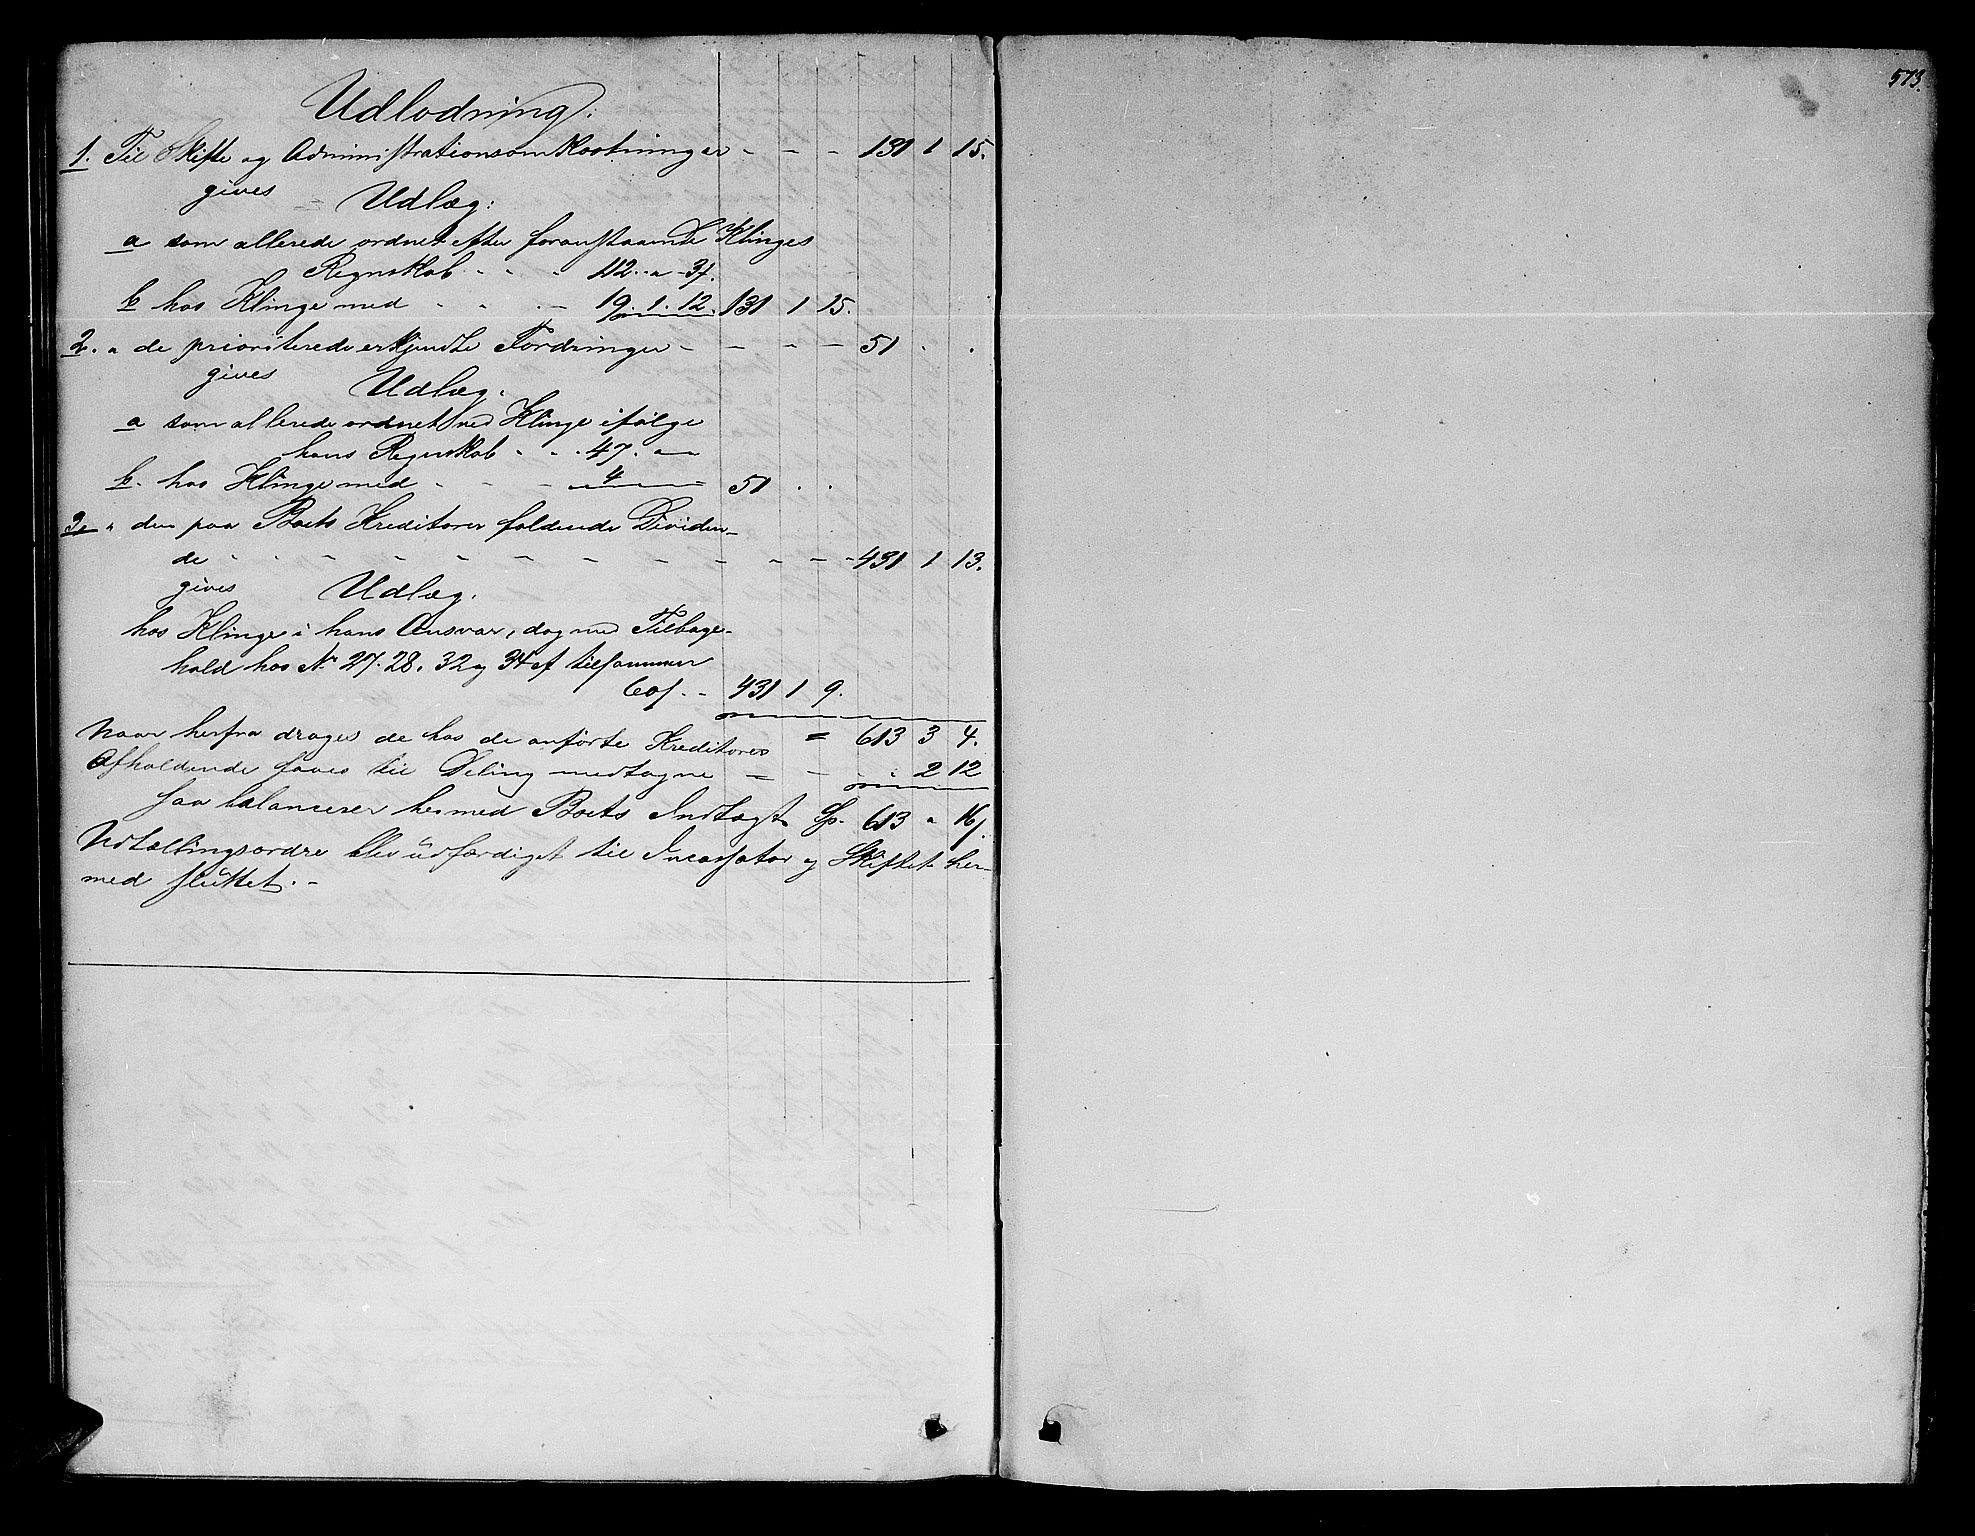 573.
Udlodning:
1. Til Skifte og Administrationsomkostninger - - - 131 1 15.
gives
Udlæg:
a som allerede ordnet efter foranstaaende Klinges
Regnskab - - - 112 " 3
b hos Klinge med - - - 19. 1. 12. 131 1 15.
2. " de prioriterede erkjendte Fordringer - - - - 51 . .
gives
Udlæg.
a som allerede ordnet ved Klinge ifølge
hans Regnskab - - . 47. " "
b. hos Klinge med - - - 4 51 . .
3. " den paa Boets Kreditorer faldende Dividen-
de - - - - - - - - - - 431 1 13.
gives
Udlæg.
hos Klinge i hans Ansvar, dog med Tilbage-
hold hos No 27. 28. 32 og 34 af tilsammen
431 1 9.
Naar herfra drages de hos de anførte Kreditorer = 613 3 4.
Afholdende til Deling medtagne = - . 2 12
saa balancerer hermed Boets Indtægt Sp. 613 " 16
Udtællingsordre blev udfærdiget til Incassator og Skiftet her-
med sluttet. -